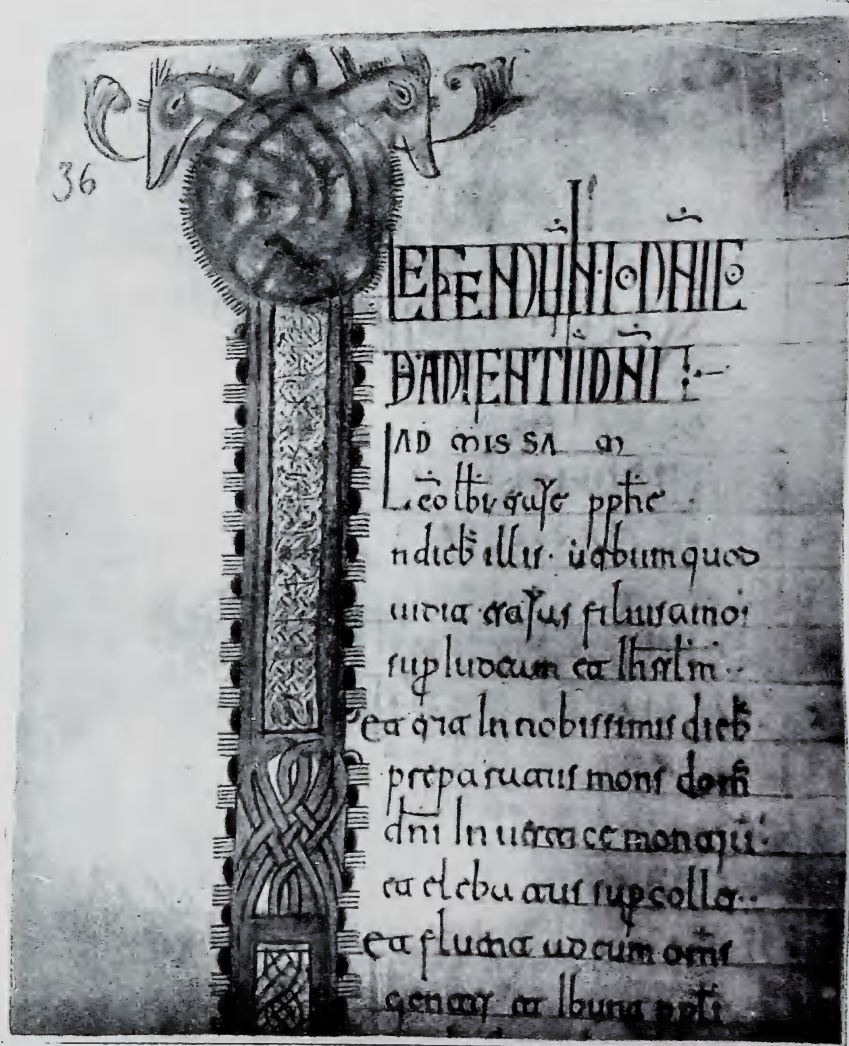 36
LEGENDŪ IN·I·DÑICO
D ADVENTŪ DÑI
AD MISSAM
Leo lbri esaye pphe
n dieb illis· uerbum quod
uidit esayas filius amos
sup iudam et ihrslm
et erit in nobissimis dieb
preparatus mons dom
dñi in uertice montiū
et elebatus sup colles
et fluent ad eum oms
gentes et ibunt ppli